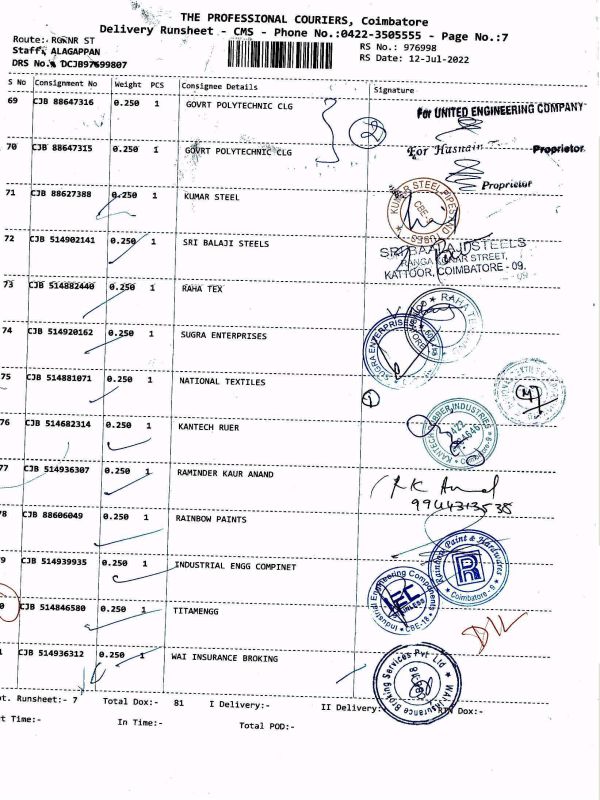 THE PROFESSIONAL COURIERS, Coimbatore
Delivery Runsheet - CMS - Phone No.:0422-3505555 - Page No.:7
Route: RGKNR ST
RS No.: 976998
Staff: ALAGAPPAN
RS Date: 12-Jul-2022
DRS No.: DCJB97699807
S No Consignment No Weight PCS Consignee Details Signature
69 CJB 88647316 0.250 1 GOVRT POLYTECHNIC CLG
For UNITED ENGINEERING COMPANY
2
70 CJB 88647315 0.250 1 GOVRT POLYTECHNIC CLG
For Husnain Proprietor
Proprietor
71 CJB 88627388 0.250 1 KUMAR STEEL
KUMAR STEEL PIPES AND TUBES CBE
72 CJB 514902141 0.250 1 SRI BALAJI STEELS
SRI BALAJI STEELS
RANGA KONAR STREET,
KATTOOR, COIMBATORE - 09.
73 CJB 514882440 0.250 1 RAHA TEX
RAHA TEX
74 CJB 514920162 0.250 1 SUGRA ENTERPRISES
SUGRA ENTERPRISES
75 CJB 514881071 0.250 1 NATIONAL TEXTILES
1
76 CJB 514682314 0.250 1 KANTECH RUER
KANTECH RUBBER INDUSTRIES
77 CJB 514936307 0.250 1 RAMINDER KAUR ANAND
RK Anand
9944313535
78 CJB 88606049 0.250 1 RAINBOW PAINTS
Rainbow Paint & Hardwares Coimbatore - 9
79 CJB 514939935 0.250 1 INDUSTRIAL ENGG COMPINET
Industrial Engineering Components IEC CBE-18
0 CJB 514846580 0.250 1 TITAMENGG
D/L
1 CJB 514936312 0.250 1 WAI INSURANCE BROKING
WAI Insurance Broking Services Pvt Ltd
ot. Runsheet:- 7 Total Dox:- 81 I Delivery:- II Delivery:- RTN Dox:-
t Time:- In Time:- Total POD:-